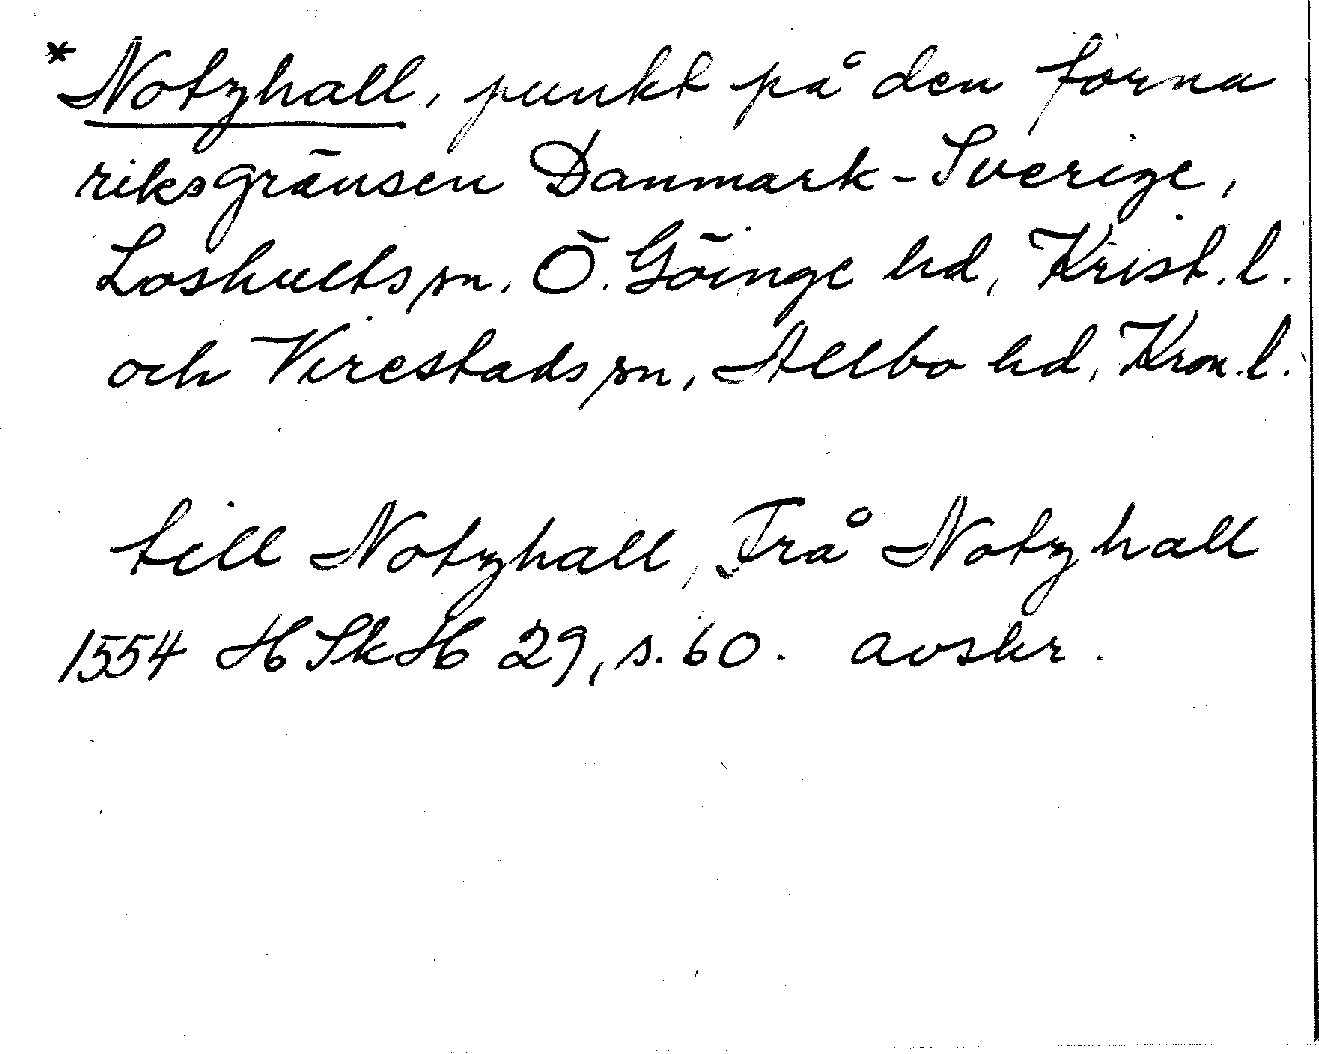 *Notzhall, punkt på den forna
riksgränsen Danmark-Sverige,
Loshults sn. Ö. Göinge hd, Krist. l.
och Virestads sn, Allbo hd, Kron. l.
till Notzhall, Frå Notzhall
1554 HSkH 29, s. 60. avskr.